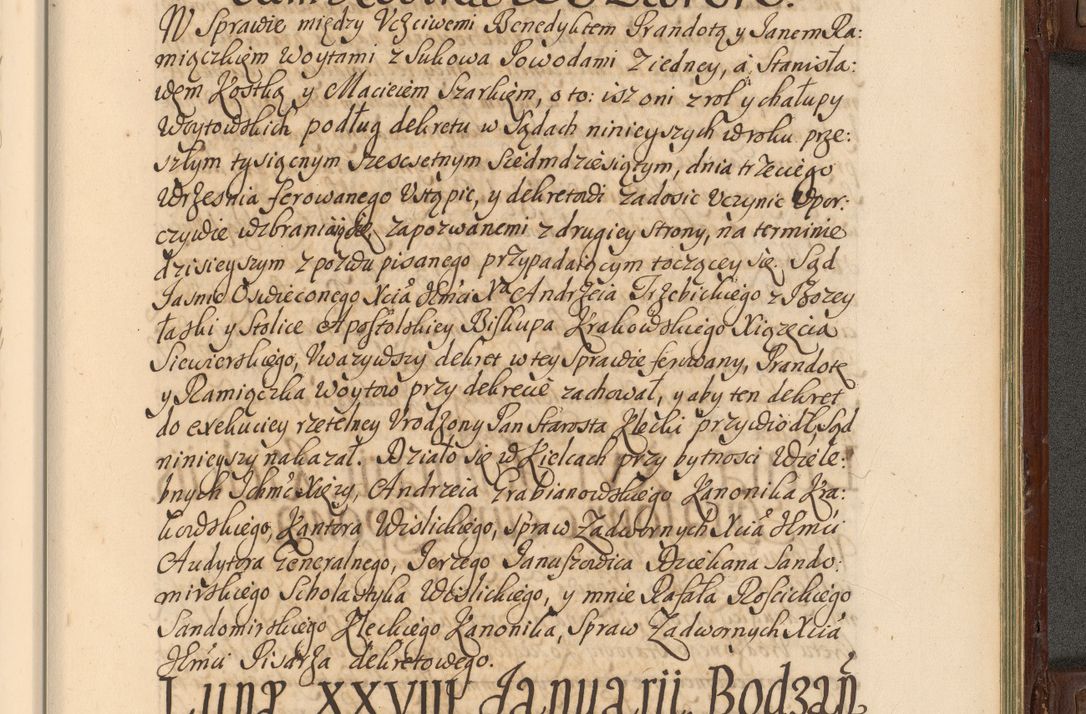 W Sprawie między Vczciwemi Benedyktem Grandotą y Janem Ra:
miączkiem Woytami z Sukowa Powodami z iedney, a Stanisła:
wem Kostką y Macieiem Szarkiem, o to: isz oni z rol y chałupy
Woytowskich podług dekretu w Sądach ninieyszych w roku prze:
szłym tysiącnym szescsetnym siedmdziesiątym, dnia trzeciego
Wrzesnia ferowanego Vstąpic, y dekretowi zadosic Vczynic Vpor:
czywie wzbraniaiącie zapozwanemi z drugiey strony, na terminie
dzisieyszym z pozwu pisanego przypadaiącym toczącey się. Sąd
Jasnie Oswieconego Xcia Jmci Xa Andrzeia Trzebickiego z Bozey
łaski y Stolice Apostolskiey Biskupa Krakowskiego Xiązęcia
Siewierskiego, Vwazywszy dekret w tey Sprawie ferowany, Grandotę
y Ramiączka Woytow przy dekrecie zachował, y aby ten dekret
do exekuciey rzetelney Vrodzony Pan Starosta Klecki przywiodł, Sąd
ninieyszy nakazał. Działo się w Kielcach przy bytnosci Wiele:
bnych Ichmc Xięzy, Andrzeia Grabianowskiego Kanonika Kra:
kowskiego, Kantora Wislickiego, spraw Zadwornych Xcia Jmci
Audytora Generalnego, Jerzego Januszowica Dziekana Sando:
mirskiego Scholastyka Wislickiego, y mnie Rafała Roscickiego
Sandomirskiego Kleckiego Kanonika, Spraw Zadwornych Xcia
Jmci Pisarza dekretowego.
Lunæ XXVIII Januarii Bodzań